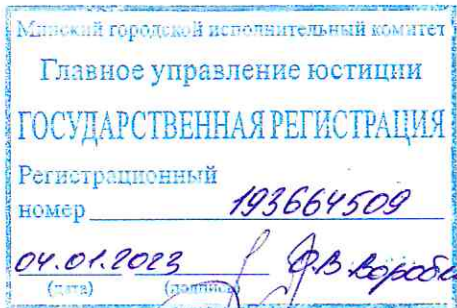 Минский городской исполнительный комитет
Главное управление юстиции
ГОСУДАРСТВЕННАЯ РЕГИСТРАЦИЯ
Регистрационный
номер 193664509
04.01.2023
(дата) (подпись)